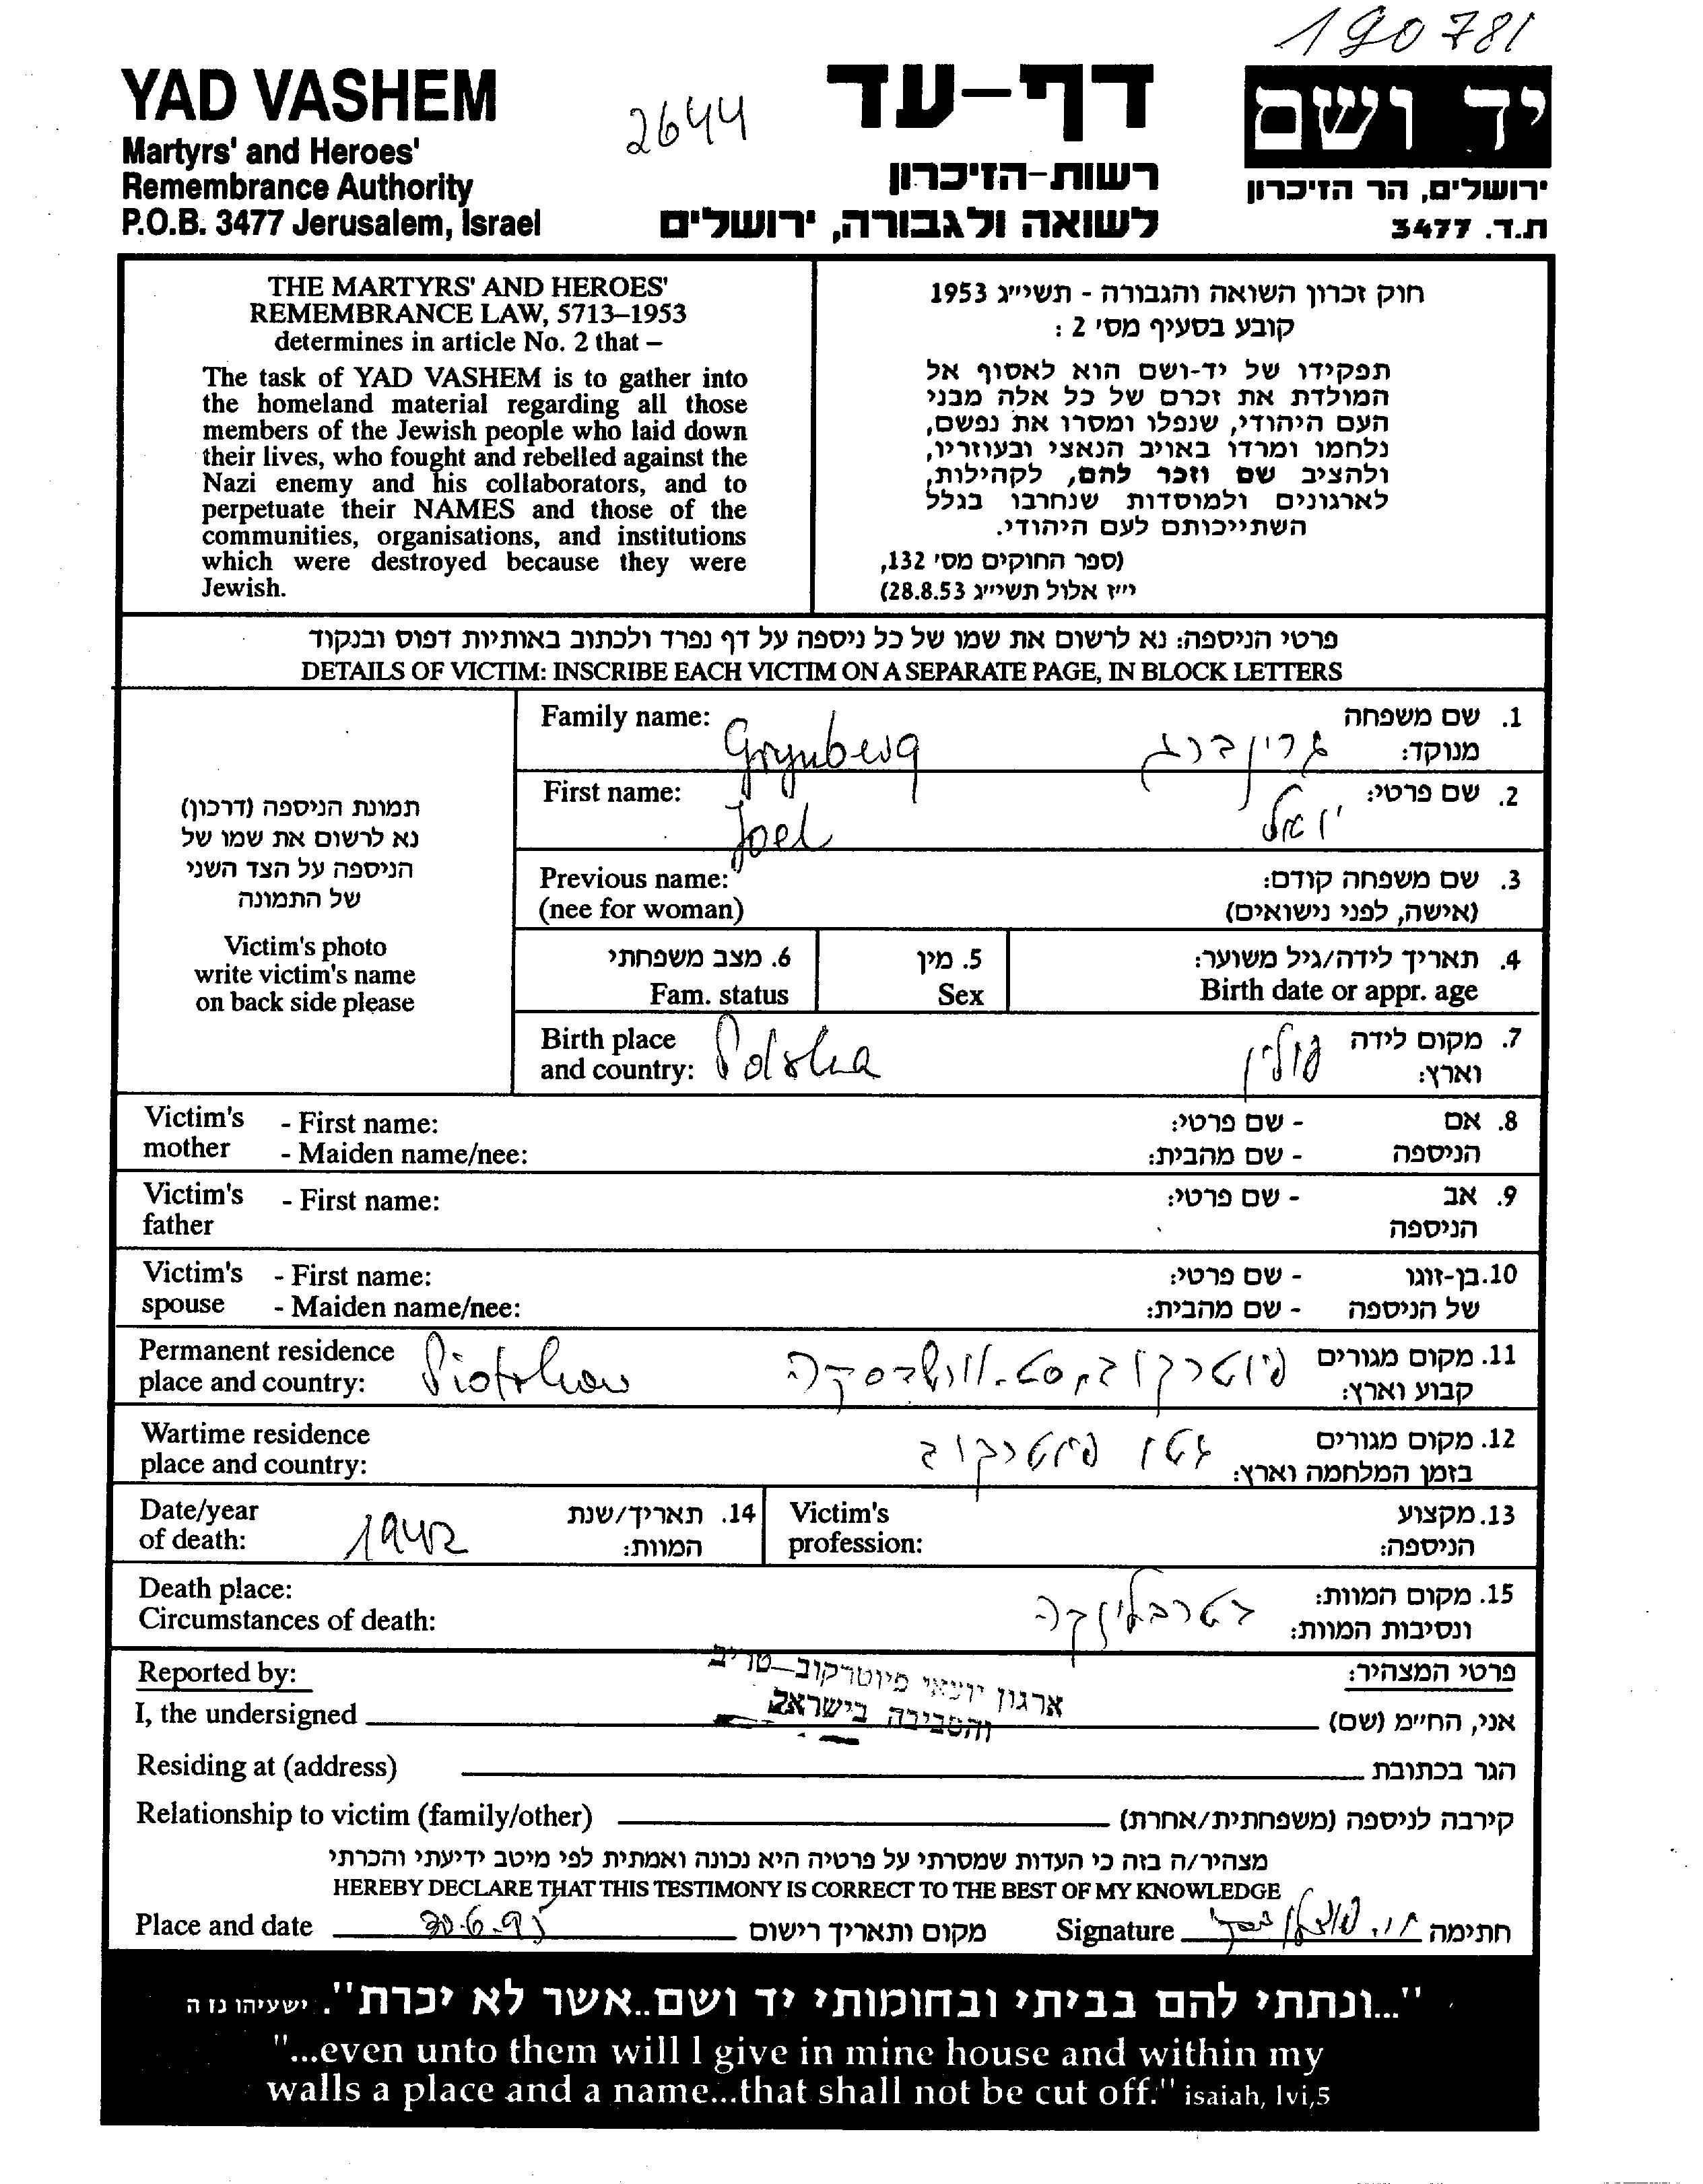 190781
YAD VASHEM
Martyrs' and Heroes'
Remembrance Authority
P.O.B. 3477 Jerusalem, Israel
2644
דף-עד
רשות-הזיכרון
לשואה ולגבורה, ירושלים
יד ושם
ירושלים, הר הזיכרון
ת.ד. 3477
THE MARTYRS' AND HEROES'
REMEMBRANCE LAW, 5713–1953
determines in article No. 2 that –
The task of YAD VASHEM is to gather into
the homeland material regarding all those
members of the Jewish people who laid down
their lives, who fought and rebelled against the
Nazi enemy and his collaborators, and to
perpetuate their NAMES and those of the
communities, organisations, and institutions
which were destroyed because they were
Jewish.
חוק זכרון השואה והגבורה - תשי״ג 1953
קובע בסעיף מס׳ 2 :
תפקידו של יד-ושם הוא לאסוף אל
המולדת את זכרם של כל אלה מבני
העם היהודי, שנפלו ומסרו את נפשם,
נלחמו ומרדו באויב הנאצי ובעוזריו,
ולהציב שם וזכר להם, לקהילות,
לארגונים ולמוסדות שנחרבו בגלל
השתייכותם לעם היהודי.
(ספר החוקים מס׳ 132,
י״ז אלול תשי״ג 28.8.53)
פרטי הניספה: נא לרשום את שמו של כל ניספה על דף נפרד ולכתוב באותיות דפוס ובנקוד
DETAILS OF VICTIM: INSCRIBE EACH VICTIM ON A SEPARATE PAGE, IN BLOCK LETTERS
תמונת הניספה (דרכון)
נא לרשום את שמו של
הניספה על הצד השני
של התמונה
Victim's photo
write victim's name
on back side please
Family name: Grynberg
1. שם משפחה
מנוקד: גרינברג
First name: Joel
2. שם פרטי: יואל
Previous name:
(nee for woman)
3. שם משפחה קודם:
(אישה, לפני נישואים)
4. תאריך לידה/גיל משוער:
Birth date or appr. age
5. מין
Sex
6. מצב משפחתי
Fam. status
Birth place
and country: Polska
7. מקום לידה
וארץ: פולין
Victim's - First name:
mother - Maiden name/nee:
8. אם - שם פרטי:
הניספה - שם מהבית:
Victim's - First name:
father
9. אב - שם פרטי:
הניספה
Victim's - First name:
spouse - Maiden name/nee:
10. בן-זוגו - שם פרטי:
של הניספה - שם מהבית:
Permanent residence
place and country: Piotrkow
11. מקום מגורים
קבוע וארץ: פיוטרקוב
Wartime residence
place and country:
12. מקום מגורים
בזמן המלחמה וארץ: גטו פיוטרקוב
Date/year
of death: 1942
14. תאריך/שנת
המוות:
Victim's
profession:
13. מקצוע
הניספה:
Death place:
Circumstances of death:
15. מקום המוות:
ונסיבות המוות: בטרבלינקה
Reported by:
פרטי המצהיר:
ארגון יוצאי פיוטרקוב-טריב
והסביבה בישראל
I, the undersigned
אני, הח״מ (שם)
Residing at (address)
הגר בכתובת
Relationship to victim (family/other)
קירבה לניספה (משפחתית/אחרת)
מצהיר/ה בזה כי העדות שמסרתי על פרטיה היא נכונה ואמתית לפי מיטב ידיעתי והכרתי
HEREBY DECLARE THAT THIS TESTIMONY IS CORRECT TO THE BEST OF MY KNOWLEDGE
Place and date 30.6.95 מקום ותאריך רישום
Signature חתימה
"...ונתתי להם בביתי ובחומותי יד ושם..אשר לא יכרת". ישעיהו נז ה
"...even unto them will I give in mine house and within my
walls a place and a name...that shall not be cut off." isaiah, lvi,5